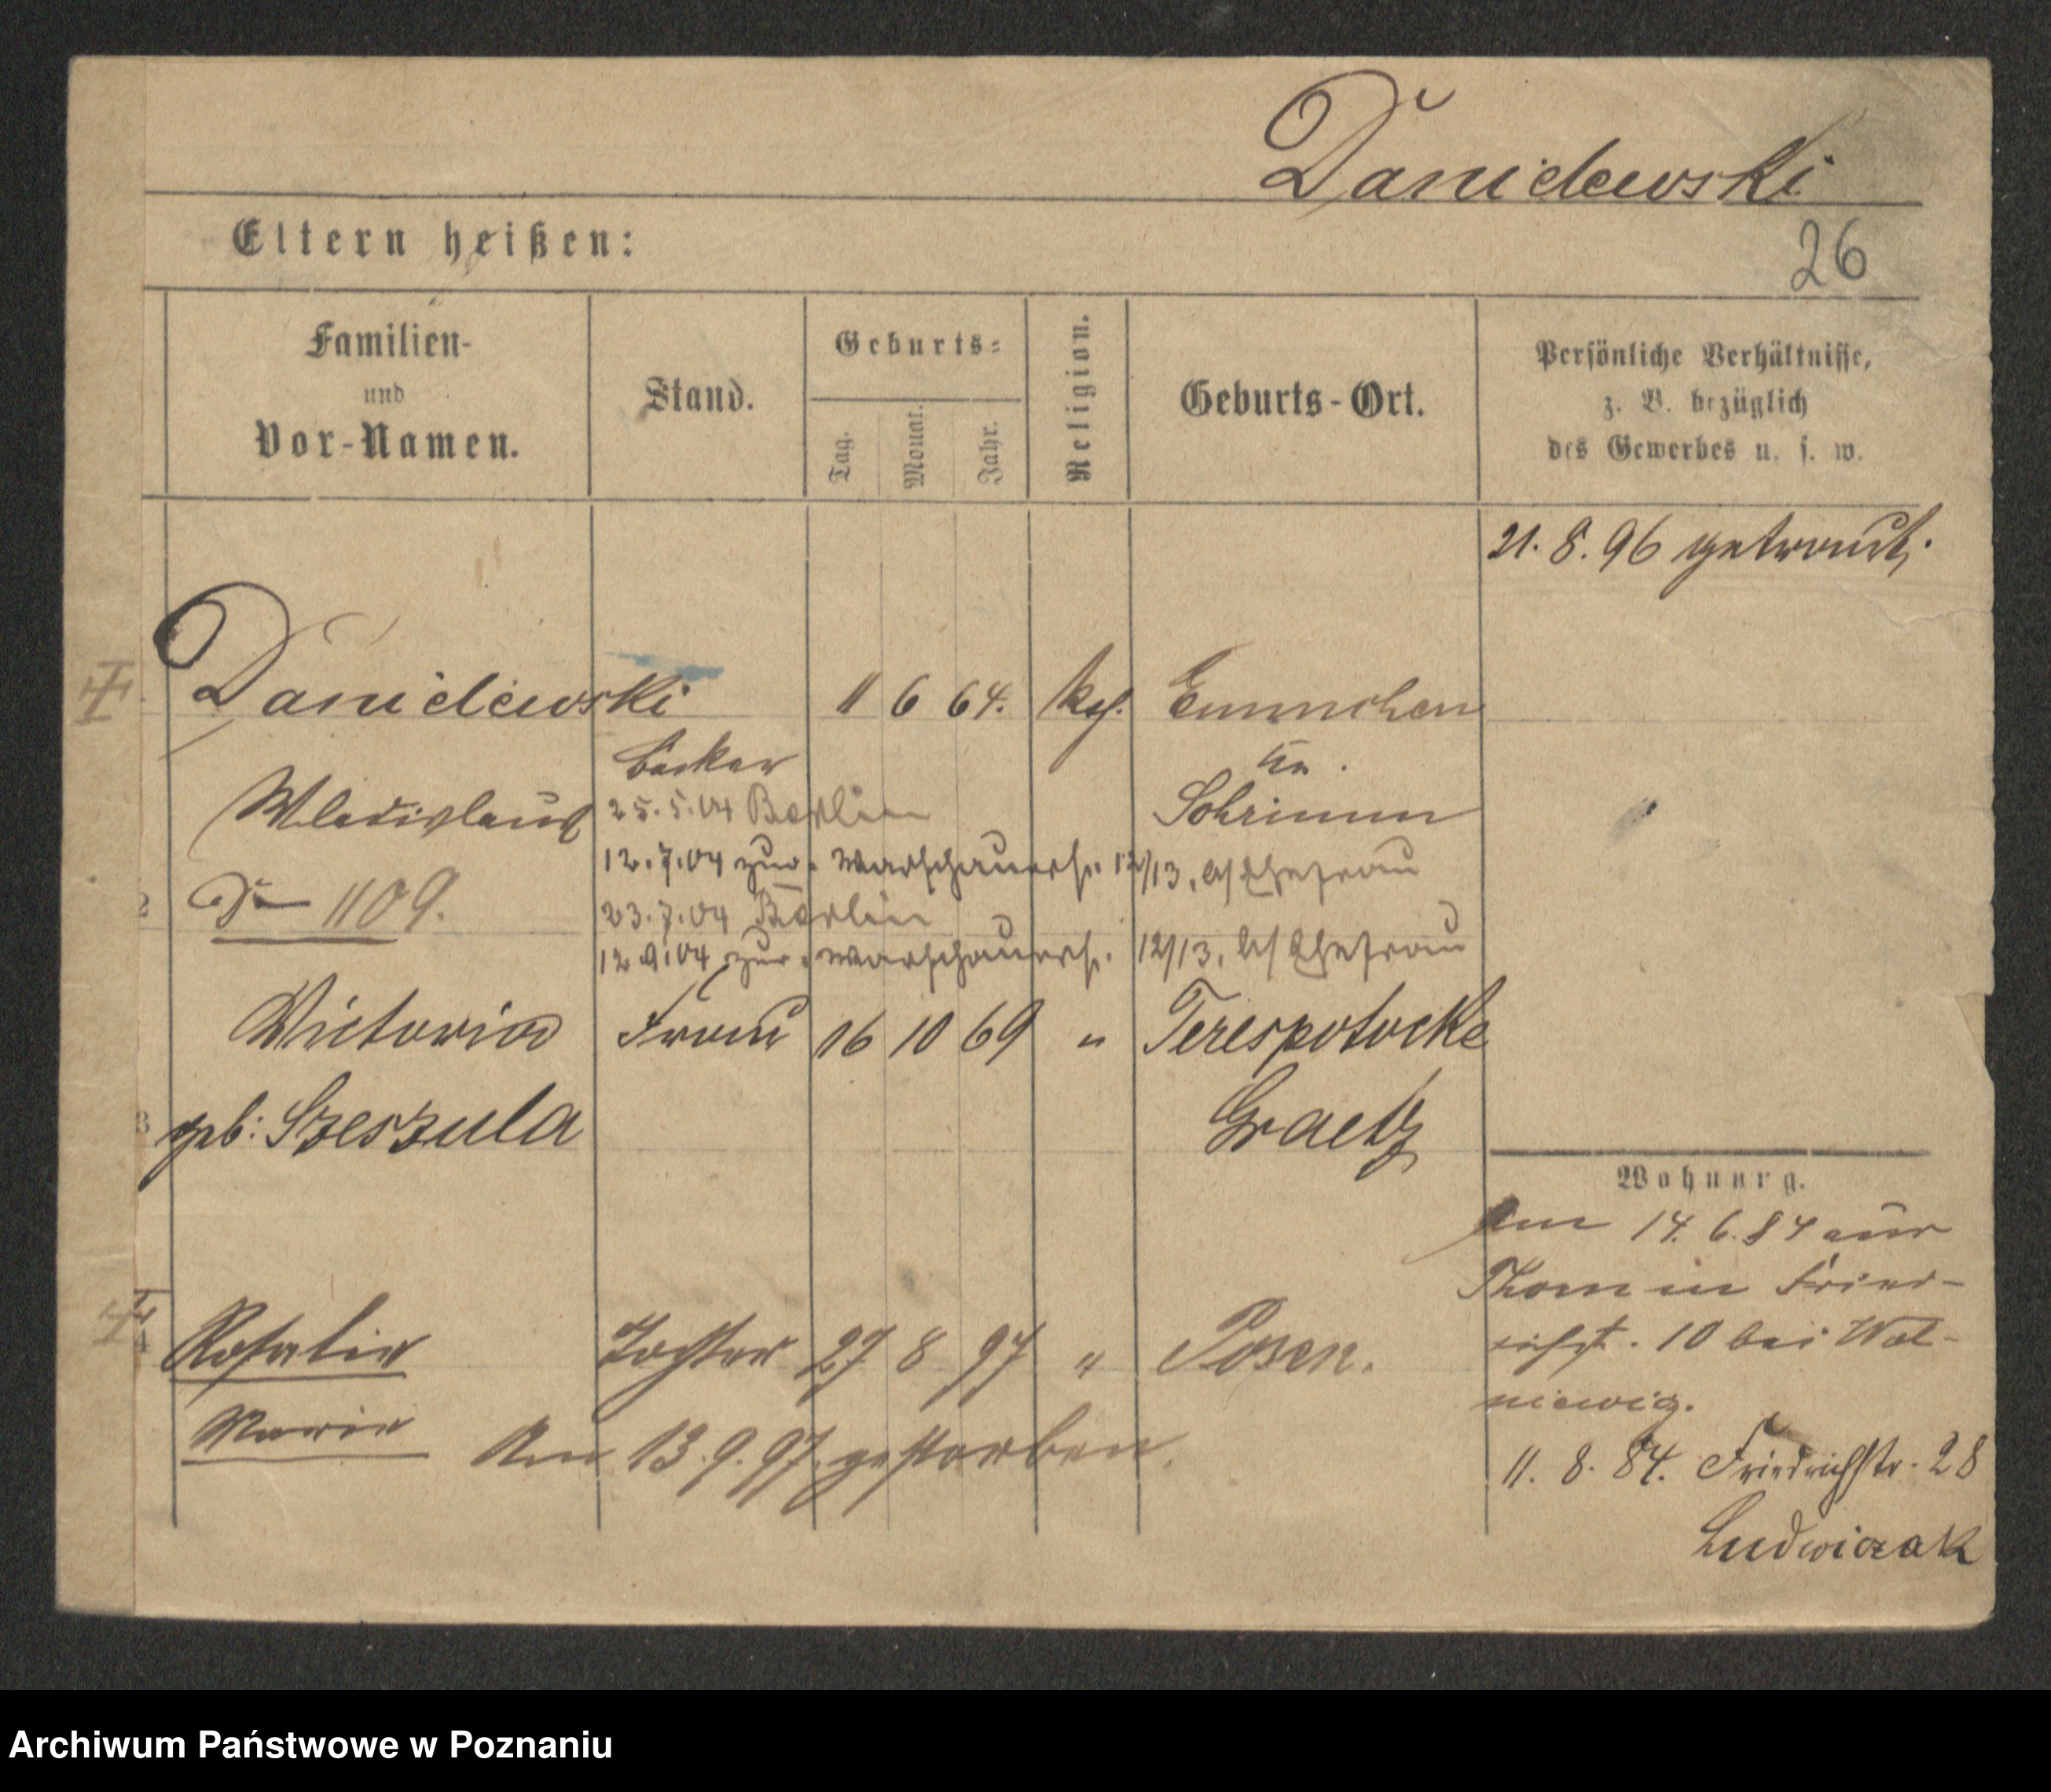 Danielewski
26
Eltern heißen:
Familien-
und
Vor-Namen.
Stand.
Geburts-
Tag.
Monat.
Jahr.
Religion.
Geburts-Ort.
Persönliche Verhältnisse,
z. B. bezüglich
des Gewerbes u. s. w.
21. 8. 96 getraut.
Danielewski 11 6 64. kath.
Bäcker
Schrimm
Wladislaus 25.5.04 Berlin
12.7.04 zur. Warschauerst. 12/13, b/Ehefrau
1109.
23.7.04 Berlin
12.9.04 zur. Warschauerst. 12/13, b/Ehefrau
2
Victoria Frau 16 10 69 " Terespotocke
3 geb: Szeszula Graetz
Wohnung.
Am 14. 6. 84 aus
Thorn in Fried-
richst. 10 bei Wol-
niewicz.
4
Rosalie Tochter 27 8 97 " Posen.
Marie Am 13.9.97. gestorben.
11. 8. 84. Friedrichstr. 28
Ludwiczak
Archiwum Państwowe w Poznaniu